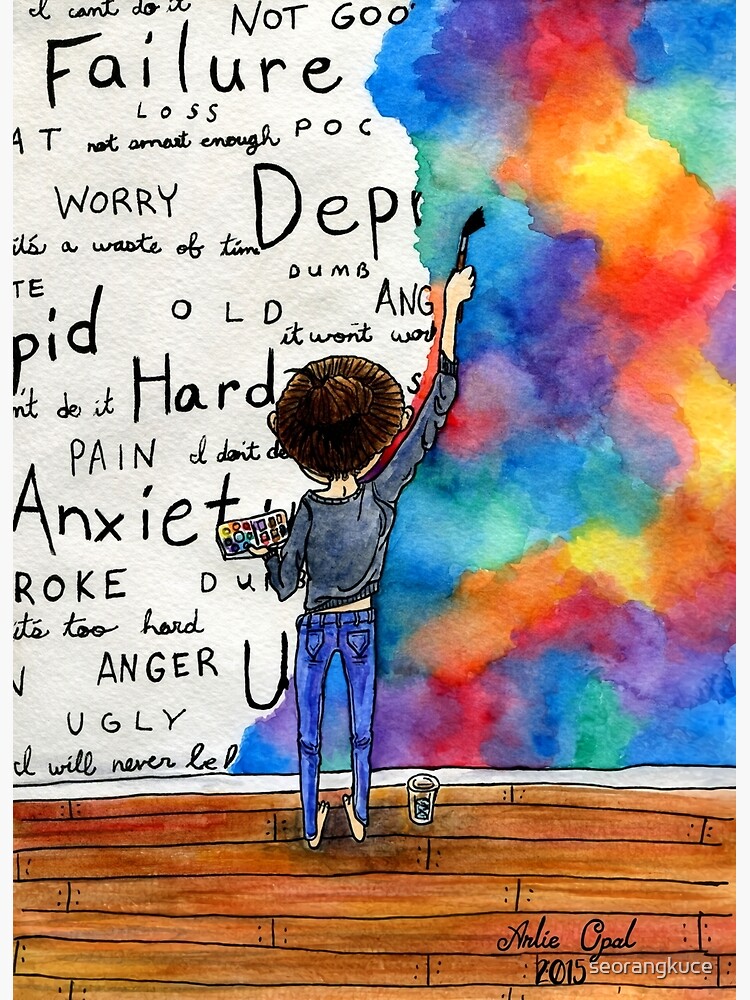 I can't do it
NOT GOO
Failure
LOSS
AT not smart enough POC
WORRY
Depr
it's a waste of time
DUMB
TE
OLD
ANG
pid
it won't wor
n't do it
Hard
S
PAIN
I don't de
Anxiet
ROKE
DUMB
it's too hard
ANGER
U
UGLY
I will never be
Arlie Opal
2015
seorangkuce